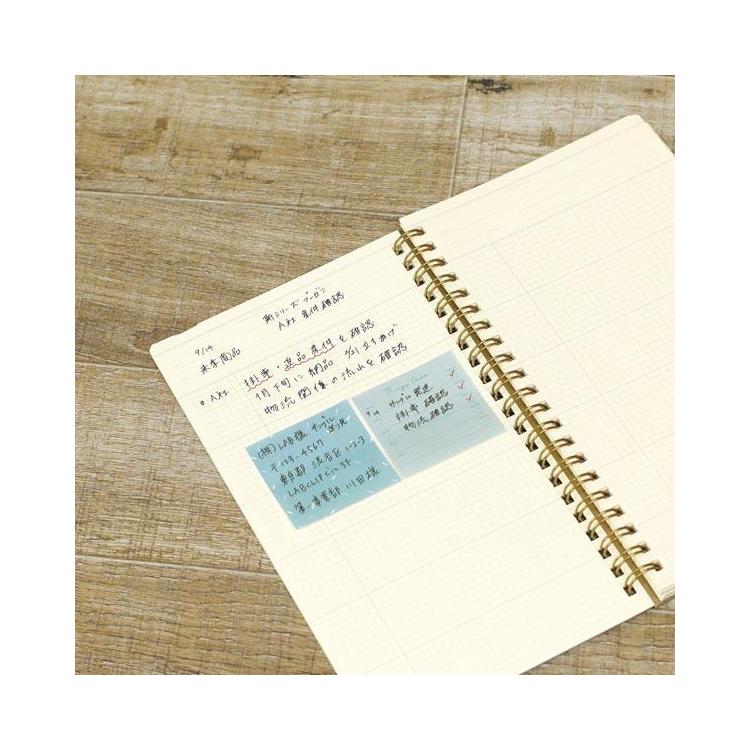 新シリーズ
A社 条件確認
9/14
来季商品
A社 掛率・返品条件を確認
1月下旬に納品 立ちあげ
物流関係の流れを確認
9/14 サンプル発送
掛率確認
物流確認
(株)LAB様 サンプル
〒123-4567
東京都渋谷区1-2-3
LABCLIPビル3F
第一事業部 川田様